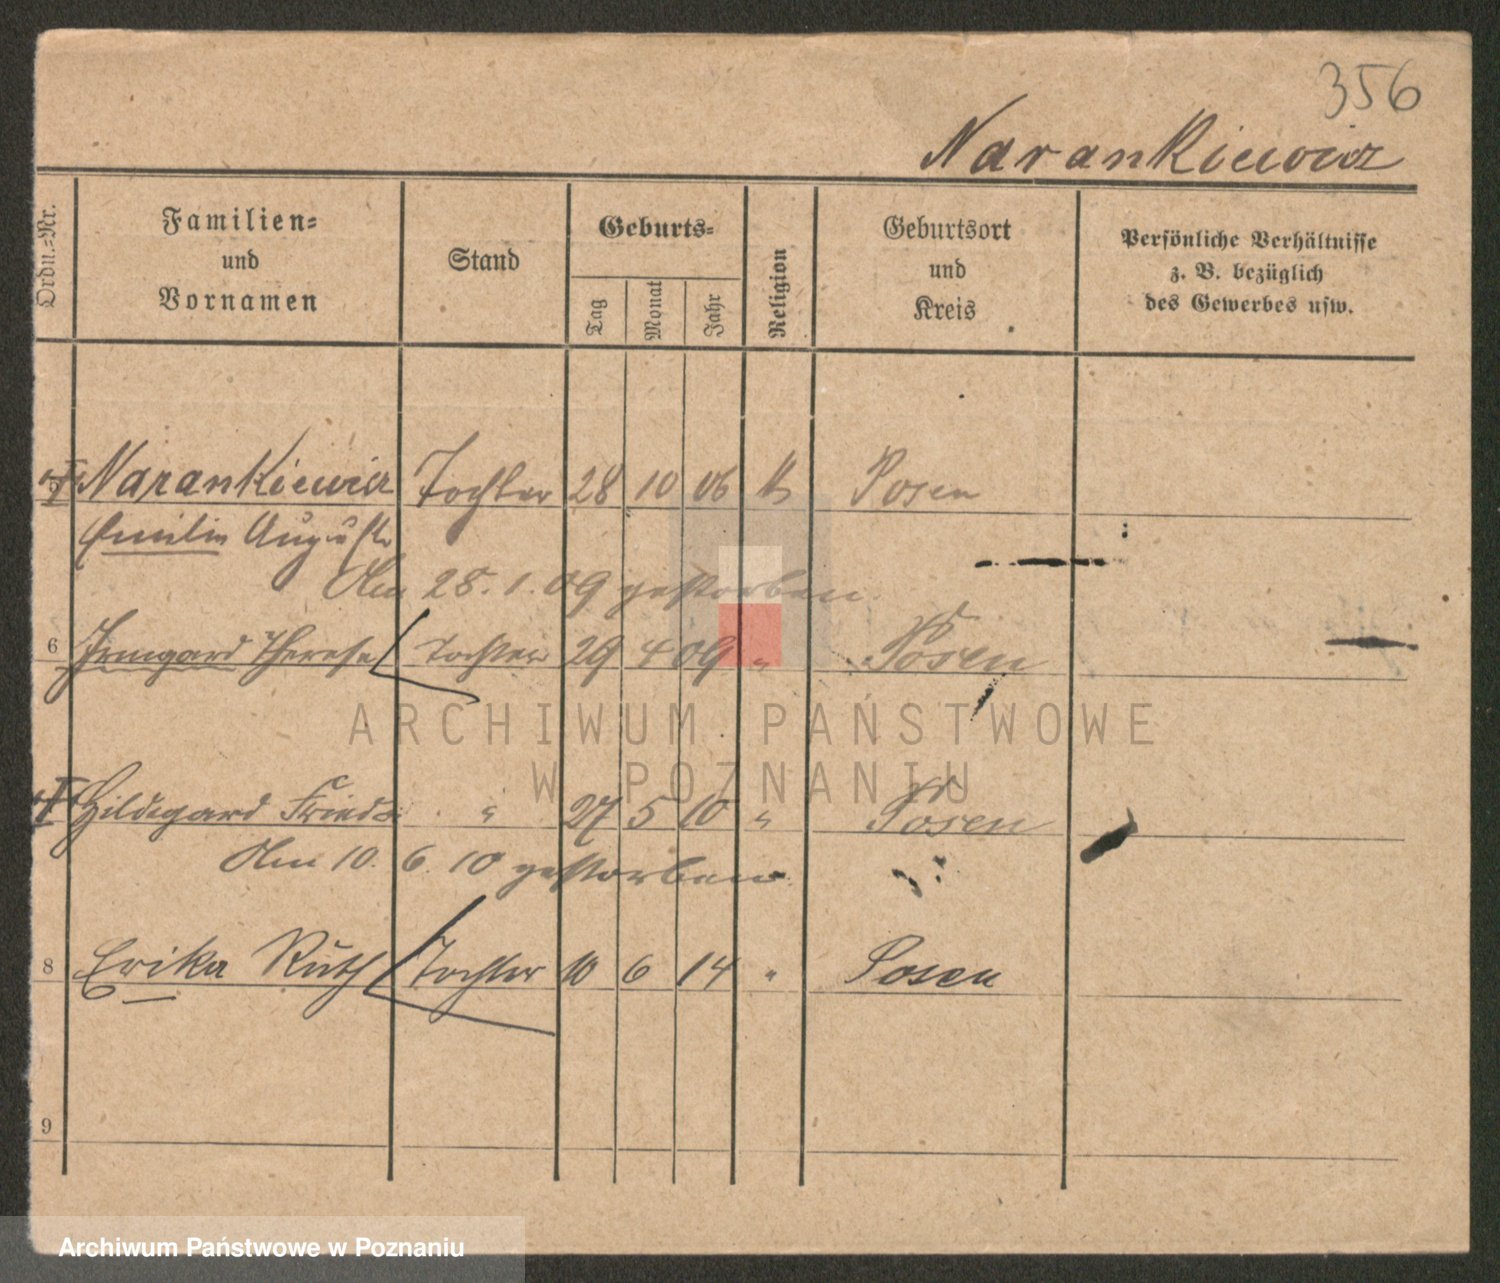 356
Narankiewicz
Ordn.=Nr.
Familien=
und
Vornamen
Stand
Geburts=
Tag
Monat
Jahr
Religion
Geburtsort
und
Kreis
Persönliche Verhältnisse
z. B. bezüglich
des Gewerbes usw.
5 Narankiewicz Tochter 28 10 06 k Posen
Emilie Auguste
Am 28. 1. 09 gestorben.
6 Irmgard Therese Tochter 29 4 09 " Posen
ARCHIWUM PAŃSTWOWE
W POZNANIU
Hildegard Frieda " 27 5 10 " Posen
Am 10. 6. 10 gestorben.
8 Erika Ruth Tochter 10 6 14 " Posen
9
Archiwum Państwowe w Poznaniu